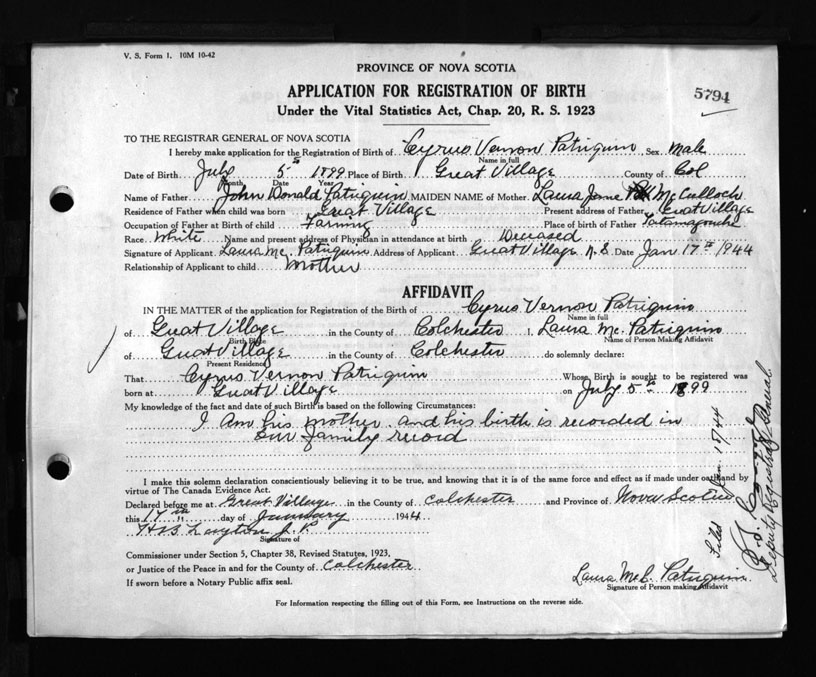 V. S. Form 1. 10M 10-42
PROVINCE OF NOVA SCOTIA
APPLICATION FOR REGISTRATION OF BIRTH
5794
Under the Vital Statistics Act, Chap. 20, R. S. 1923
TO THE REGISTRAR GENERAL OF NOVA SCOTIA
I hereby make application for the Registration of Birth of Cyrus Vernon Patriquin Sex Male
Name in full
Date of Birth July 5th 1899 Place of Birth Great Village County of Col
Month Date Year
Name of Father John Donald Patriquin MAIDEN NAME of Mother Laura Jane McCulloch
Residence of Father when child was born Great Village Present address of Father Great Village
Occupation of Father at Birth of child Farming Place of birth of Father Tatamagouche
Race White Name and present address of Physician in attendance at birth Deceased
Signature of Applicant Laura Mc. Patriquin Address of Applicant Great Village N.S. Date Jan 17th 1944
Relationship of Applicant to child Mother
AFFIDAVIT
IN THE MATTER of the application for Registration of the Birth of Cyrus Vernon Patriquin
Name in full
of Great Village in the County of Colchester I, Laura Mc. Patriquin
Birth Place Name of Person Making Affidavit
of Great Village in the County of Colchester do solemnly declare:
Present Residence
That Cyrus Vernon Patriquin Whose Birth is sought to be registered was
born at Great Village on July 5th 1899
My knowledge of the fact and date of such Birth is based on the following Circumstances:
I am his mother and his birth is recorded in
our family record
I make this solemn declaration conscientiously believing it to be true, and knowing that it is of the same force and effect as if made under oath and by
virtue of The Canada Evidence Act.
Declared before me at Great Village in the County of Colchester and Province of Nova Scotia
this 17th day of January 1944
Layton J.P.
Signature of
Commissioner under Section 5, Chapter 38, Revised Statutes, 1923,
or Justice of the Peace in and for the County of Colchester
If sworn before a Notary Public affix seal.
Laura McC. Patriquin
Signature of Person making Affidavit
For Information respecting the filling out of this Form, see Instructions on the reverse side.
Filed Jan 18/44
Deputy Registrar General.